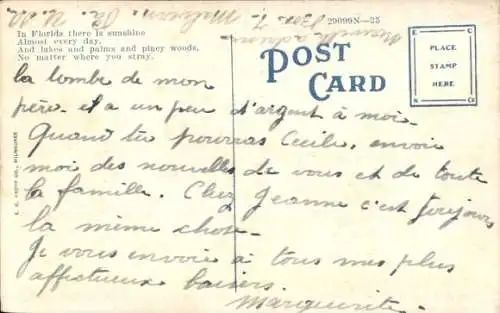 In Florida there is sunshine
Almost every day,
And lakes and palms and piney woods,
No matter where you stray.
29099N-25
POST CARD
PLACE
STAMP
HERE
la tombe de mon
père. et a un peu d'argent à moi.
Quand tu pourras Cecile, envoie
moi des nouvelles de vous et de toute
la famille. Chez Jeanne c'est toujours
la même chose.
Je vous envoie à tous mes plus
affectueux baisers.
Marguerite.
Box 7,